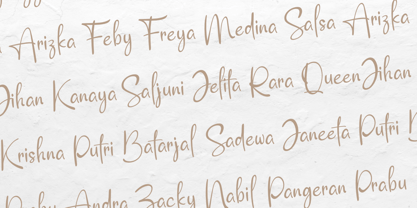 Arizka Feby Freya Medina Salsa Arizka
Jihan Kanaya Saljuni Jelita Rara Queen Jihan
Krishna Putri Batarjal Sadewa Janeeta Putri
Andra Zacky Nabil Pangeran Prabu